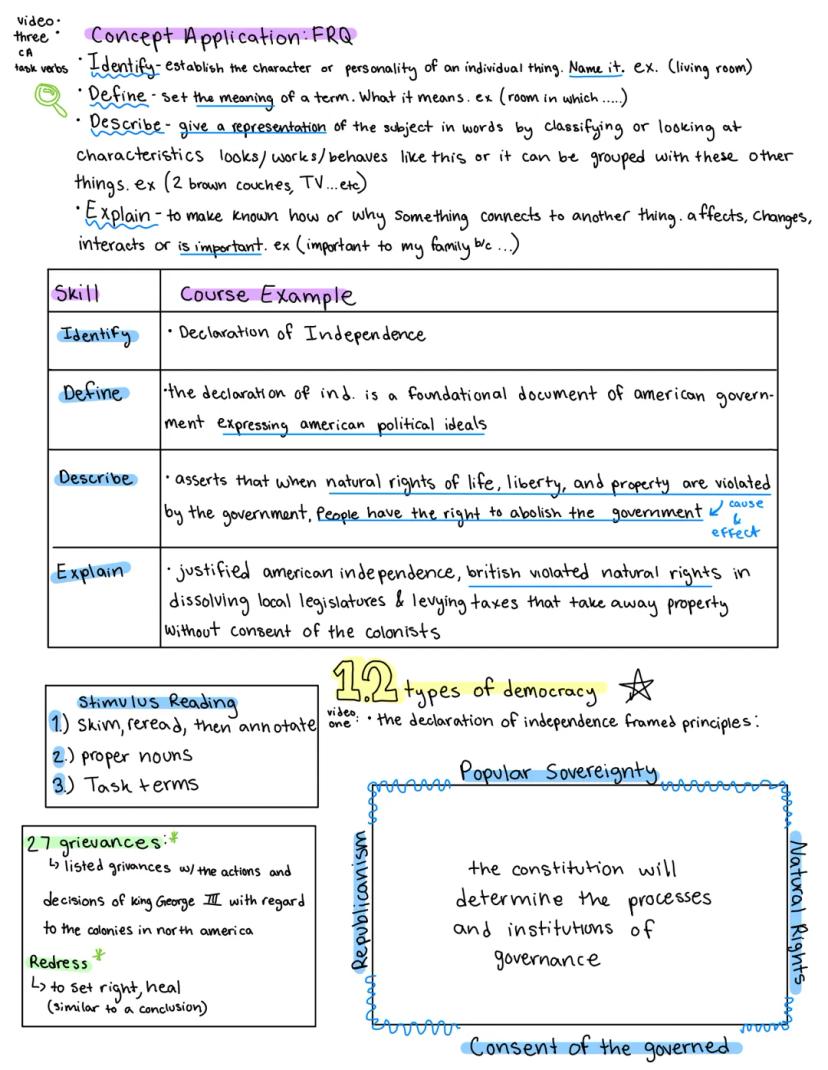 video.
three
CA
task verbs
Concept Application: FRQ
• Identify - establish the character or personality of an individual thing. Name it. ex. (living room)
• Define - set the meaning of a term. What it means. ex (room in which .....)
• Describe - give a representation of the subject in words by classifying or looking at
characteristics looks/works/behaves like this or it can be grouped with these other
things. ex (2 brown couches, TV...etc)
• Explain - to make known how or why something connects to another thing. affects, changes,
interacts or is important. ex (important to my family b/c ...)
Skill
Course Example
Identify
• Declaration of Independence
Define
• the declaration of ind. is a foundational document of american govern-
ment expressing american political ideals
Describe
• asserts that when natural rights of life, liberty, and property are violated
by the government, People have the right to abolish the government
cause
&
effect
Explain
• justified american independence, british violated natural rights in
dissolving local legislatures & levying taxes that take away property
without consent of the colonists
Stimulus Reading
1.) Skim, reread, then annotate
2.) proper nouns
3.) Task terms
27 grievances:*
↳ listed grivances w/ the actions and
decisions of King George III with regard
to the colonies in north america
Redress *
↳ to set right, heal
(similar to a conclusion)
1.2 types of democracy
video one: • the declaration of independence framed principles:
Popular Sovereignty
Republicanism
the constitution will
determine the processes
and institutions of
governance
Natural Rights
Consent of the governed